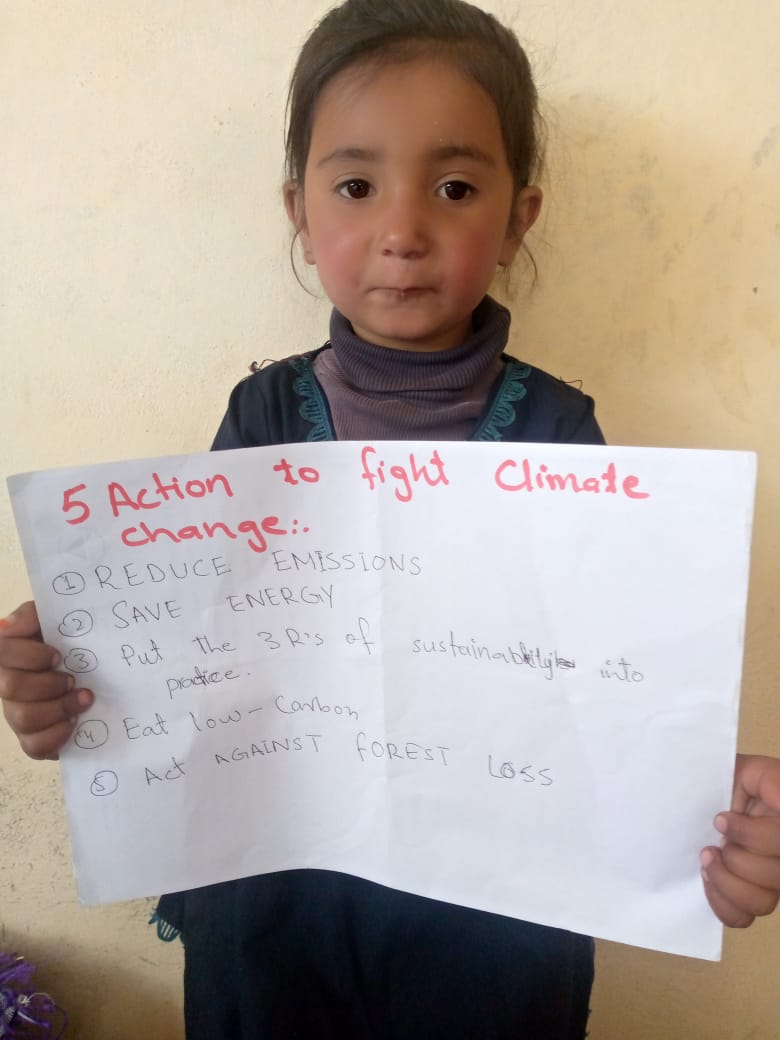 5 Action to fight Climate
change:.
① REDUCE EMISSIONS
② SAVE ENERGY
③ Put the 3 R's of sustainability into
practice.
④ Eat low-Carbon
⑤ Act AGAINST FOREST LOSS